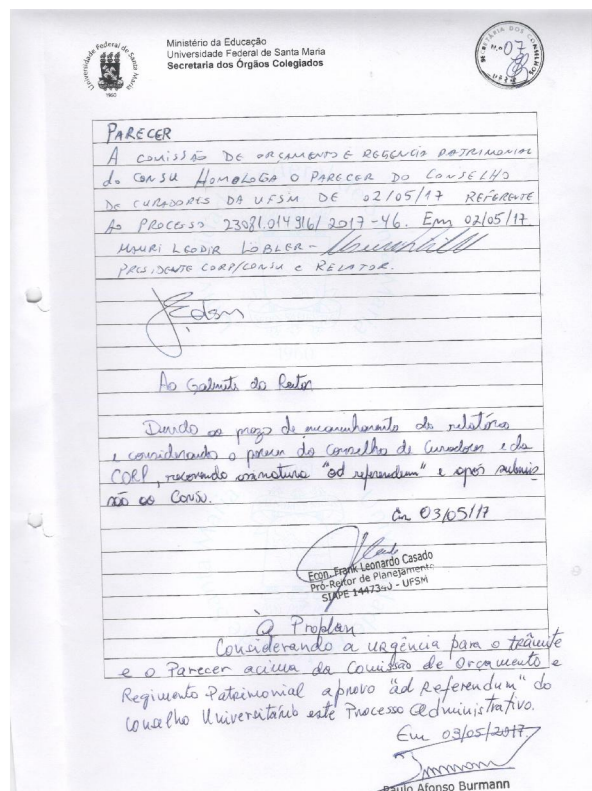 Ministério da Educação
Universidade Federal de Santa Maria
Secretaria dos Órgãos Colegiados
Universidade Federal de Santa Maria
1960
SECRETARIA DOS CONSELHOS
N.º 07
UFSM
PARECER
A COMISSÃO DE ORÇAMENTO E REGENCIA PATRIMONIAL
do CONSU HOMOLOGA O PARECER DO CONSELHO
DE CURADORES DA UFSM DE 02/05/17 REFERENTE
AO PROCESSO 23081.014916/2017-46. Em 02/05/17
MAURI LEODIR LOBLER -
PRESIDENTE CORP/CONSU e RELATOR.
Edson
Ao Gabinete do Reitor
Devido ao prazo de encaminhamento do relatório
e considerando o parecer do Conselho de Curadores e da
CORP, recomendo assinatura "ad referendum" e após submis-
são ao Consu.
Em 03/05/17
Econ. Frank Leonardo Casado
Pró-Reitor de Planejamento
SIAPE 1447340 - UFSM
À Proplan
Considerando a urgência para o trâmite
e o Parecer acima da Comissão de Orçamento e
Regimento Patrimonial aprovo "ad Referendum" do
Conselho Universitário este Processo Administrativo.
Em 03/05/2017.
Paulo Afonso Burmann